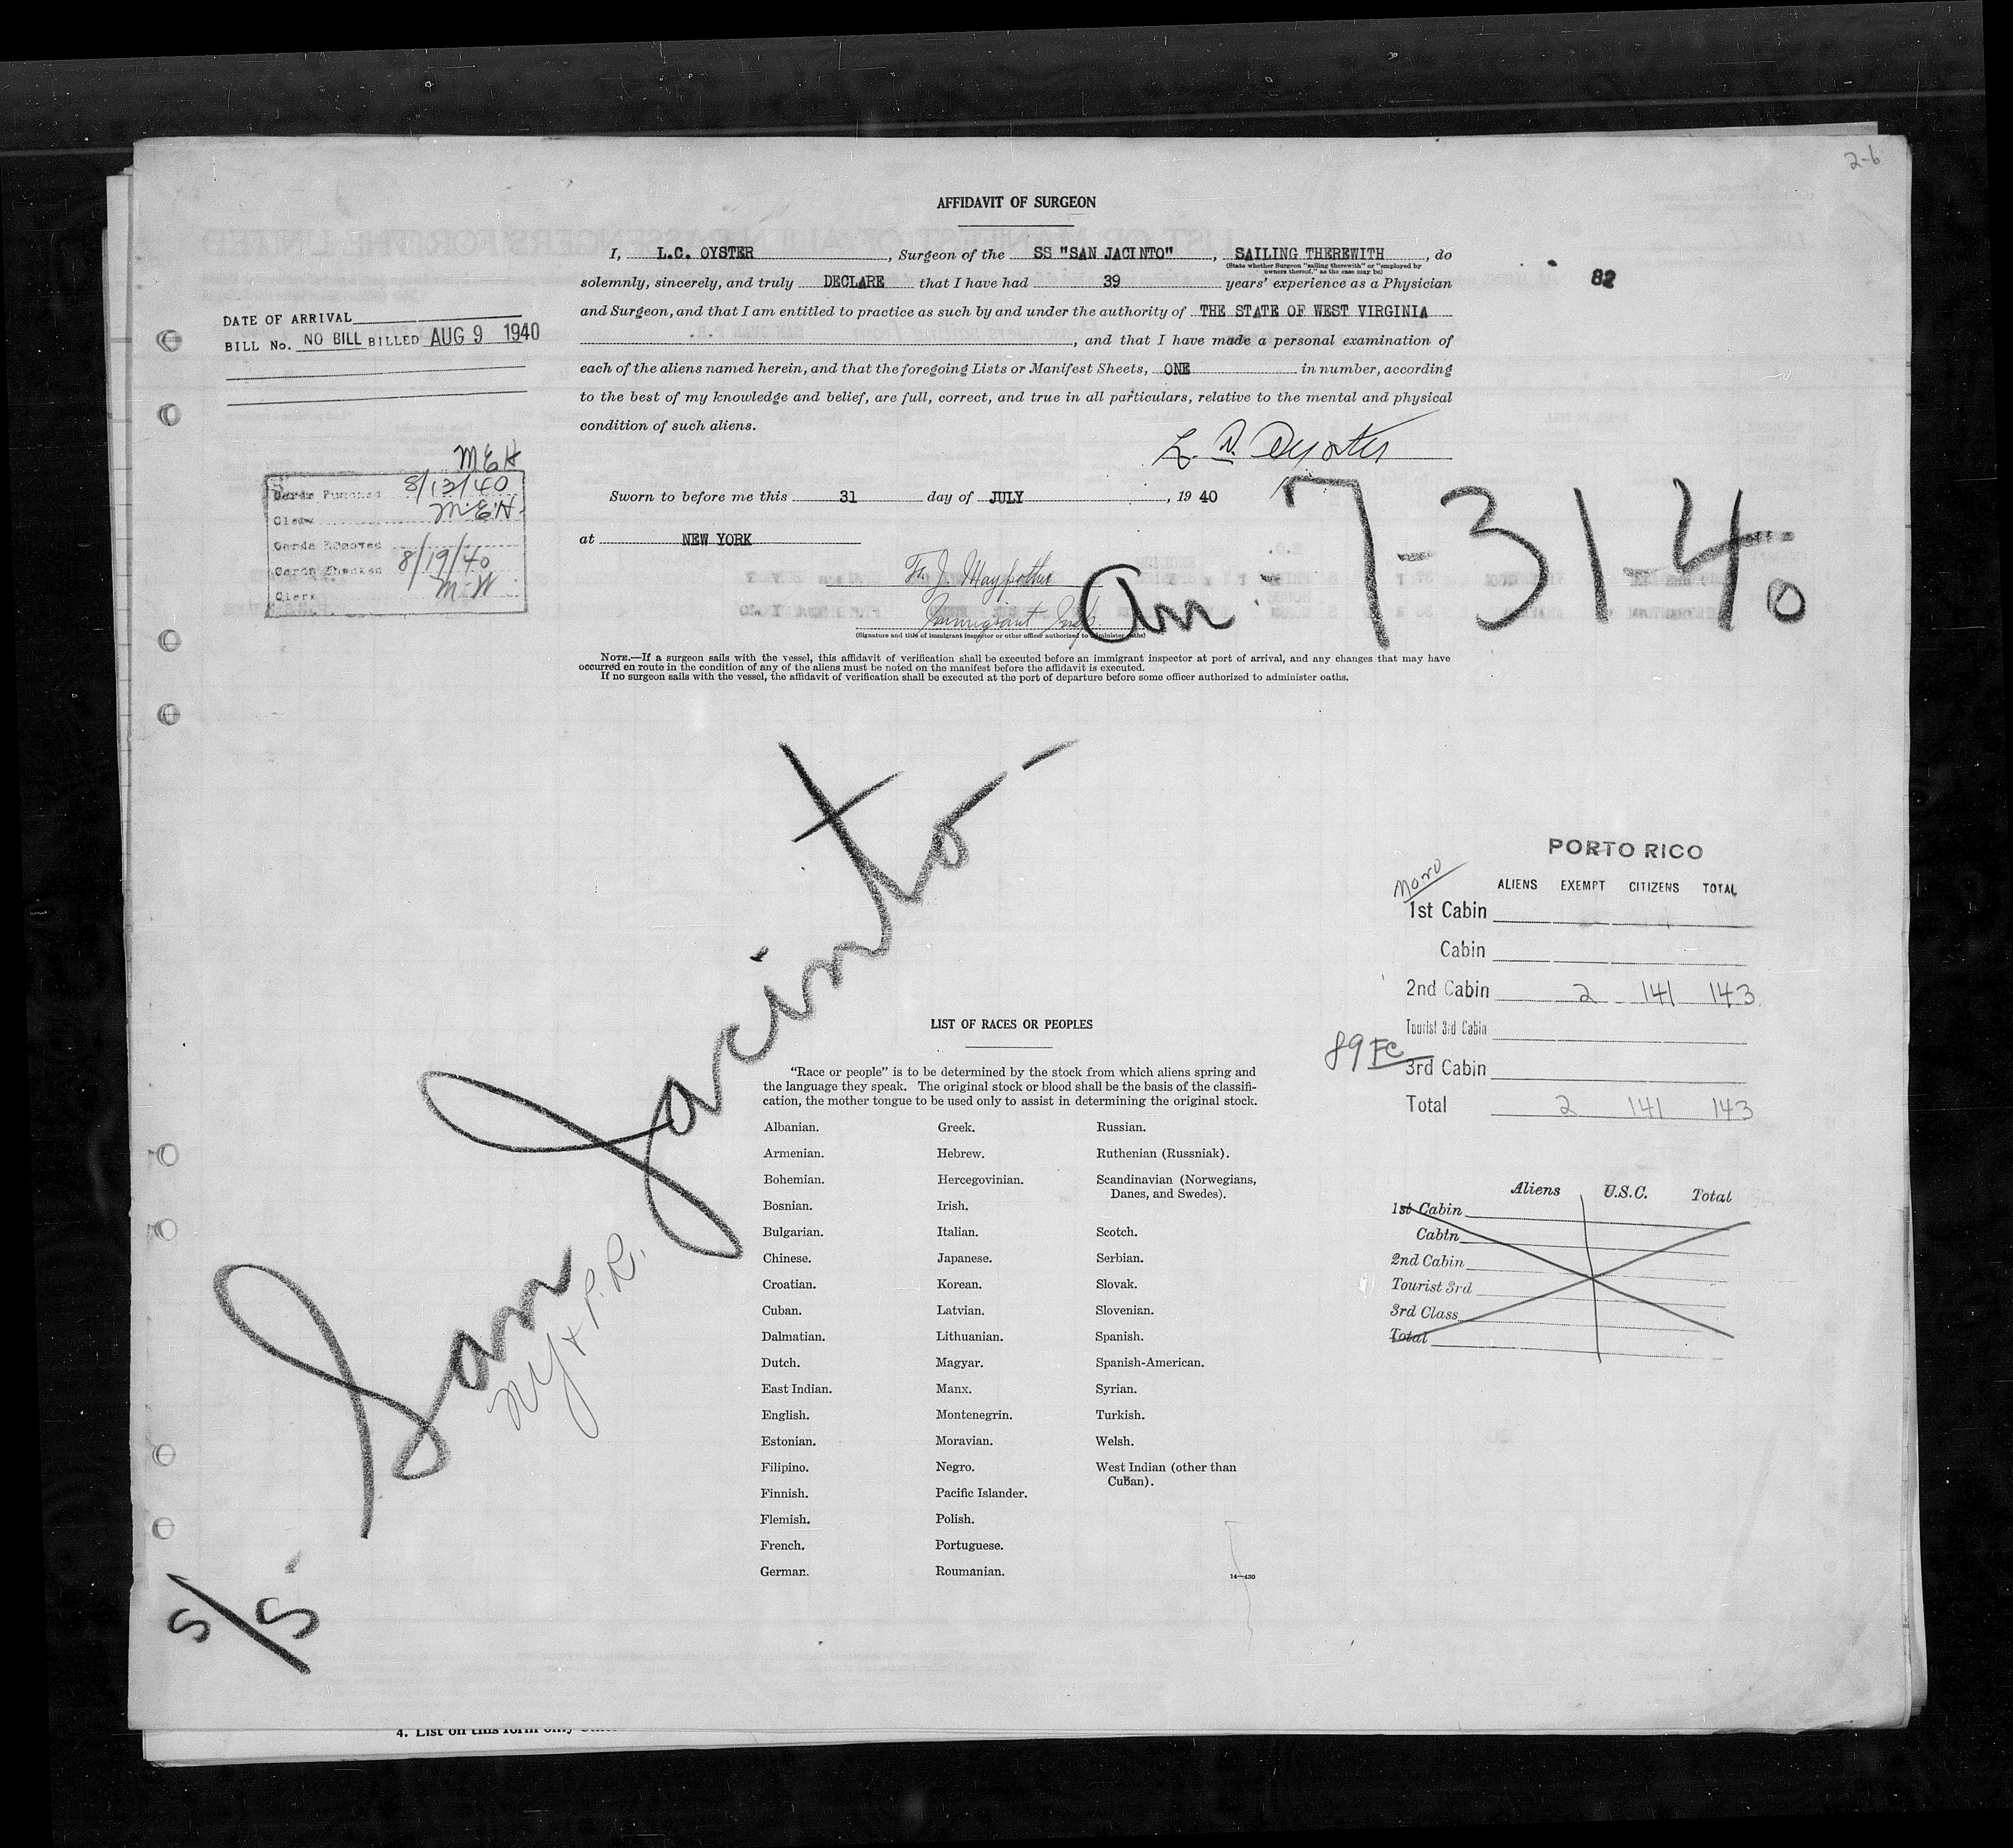 2-6
AFFIDAVIT OF SURGEON
I, L.C. OYSTER, Surgeon of the SS "SAN JACINTO", SAILING THEREWITH, do
(State whether Surgeon "sailing therewith" or "employed by
owners thereof," as the case may be)
solemnly, sincerely, and truly DECLARE that I have had 39 years' experience as a Physician
82
and Surgeon, and that I am entitled to practice as such by and under the authority of THE STATE OF WEST VIRGINIA
, and that I have made a personal examination of
each of the aliens named herein, and that the foregoing Lists or Manifest Sheets, ONE in number, according
to the best of my knowledge and belief, are full, correct, and true in all particulars, relative to the mental and physical
condition of such aliens.
DATE OF ARRIVAL
BILL No. NO BILL BILLED AUG 9 1940
MEH
Cards Punched 8/13/40
Clerk MEH
Cards Removed
Cards Checked 8/19/40
Clerk M.W
Oyster
Sworn to before me this 31 day of JULY, 19 40
at NEW YORK
Immigrant Insp
(Signature and title of immigrant inspector or other officer authorized to administer oaths)
Arr 7-31-40
NOTE.—If a surgeon sails with the vessel, this affidavit of verification shall be executed before an immigrant inspector at port of arrival, and any changes that may have
occurred en route in the condition of any of the aliens must be noted on the manifest before the affidavit is executed.
If no surgeon sails with the vessel, the affidavit of verification shall be executed at the port of departure before some officer authorized to administer oaths.
S/S San Jacinto -
NY & P.R.
PORTO RICO
ALIENS EXEMPT CITIZENS TOTAL
1st Cabin
Cabin
2nd Cabin 2 141 143
Tourist 3rd Cabin
89 FC
3rd Cabin
Total 2 141 143
Aliens U.S.C. Total
1st Cabin
Cabin
2nd Cabin
Tourist 3rd
3rd Class
Total
LIST OF RACES OR PEOPLES
"Race or people" is to be determined by the stock from which aliens spring and
the language they speak. The original stock or blood shall be the basis of the classifi-
cation, the mother tongue to be used only to assist in determining the original stock.
Albanian. Greek. Russian.
Armenian. Hebrew. Ruthenian (Russniak).
Bohemian. Hercegovinian. Scandinavian (Norwegians,
Danes, and Swedes).
Bosnian. Irish.
Bulgarian. Italian. Scotch.
Chinese. Japanese. Serbian.
Croatian. Korean. Slovak.
Cuban. Latvian. Slovenian.
Dalmatian. Lithuanian. Spanish.
Dutch. Magyar. Spanish-American.
East Indian. Manx. Syrian.
English. Montenegrin. Turkish.
Estonian. Moravian. Welsh.
Filipino. Negro. West Indian (other than
Cuban).
Finnish. Pacific Islander.
Flemish. Polish.
French. Portuguese.
German. Roumanian.
14—430
4. List on this form only